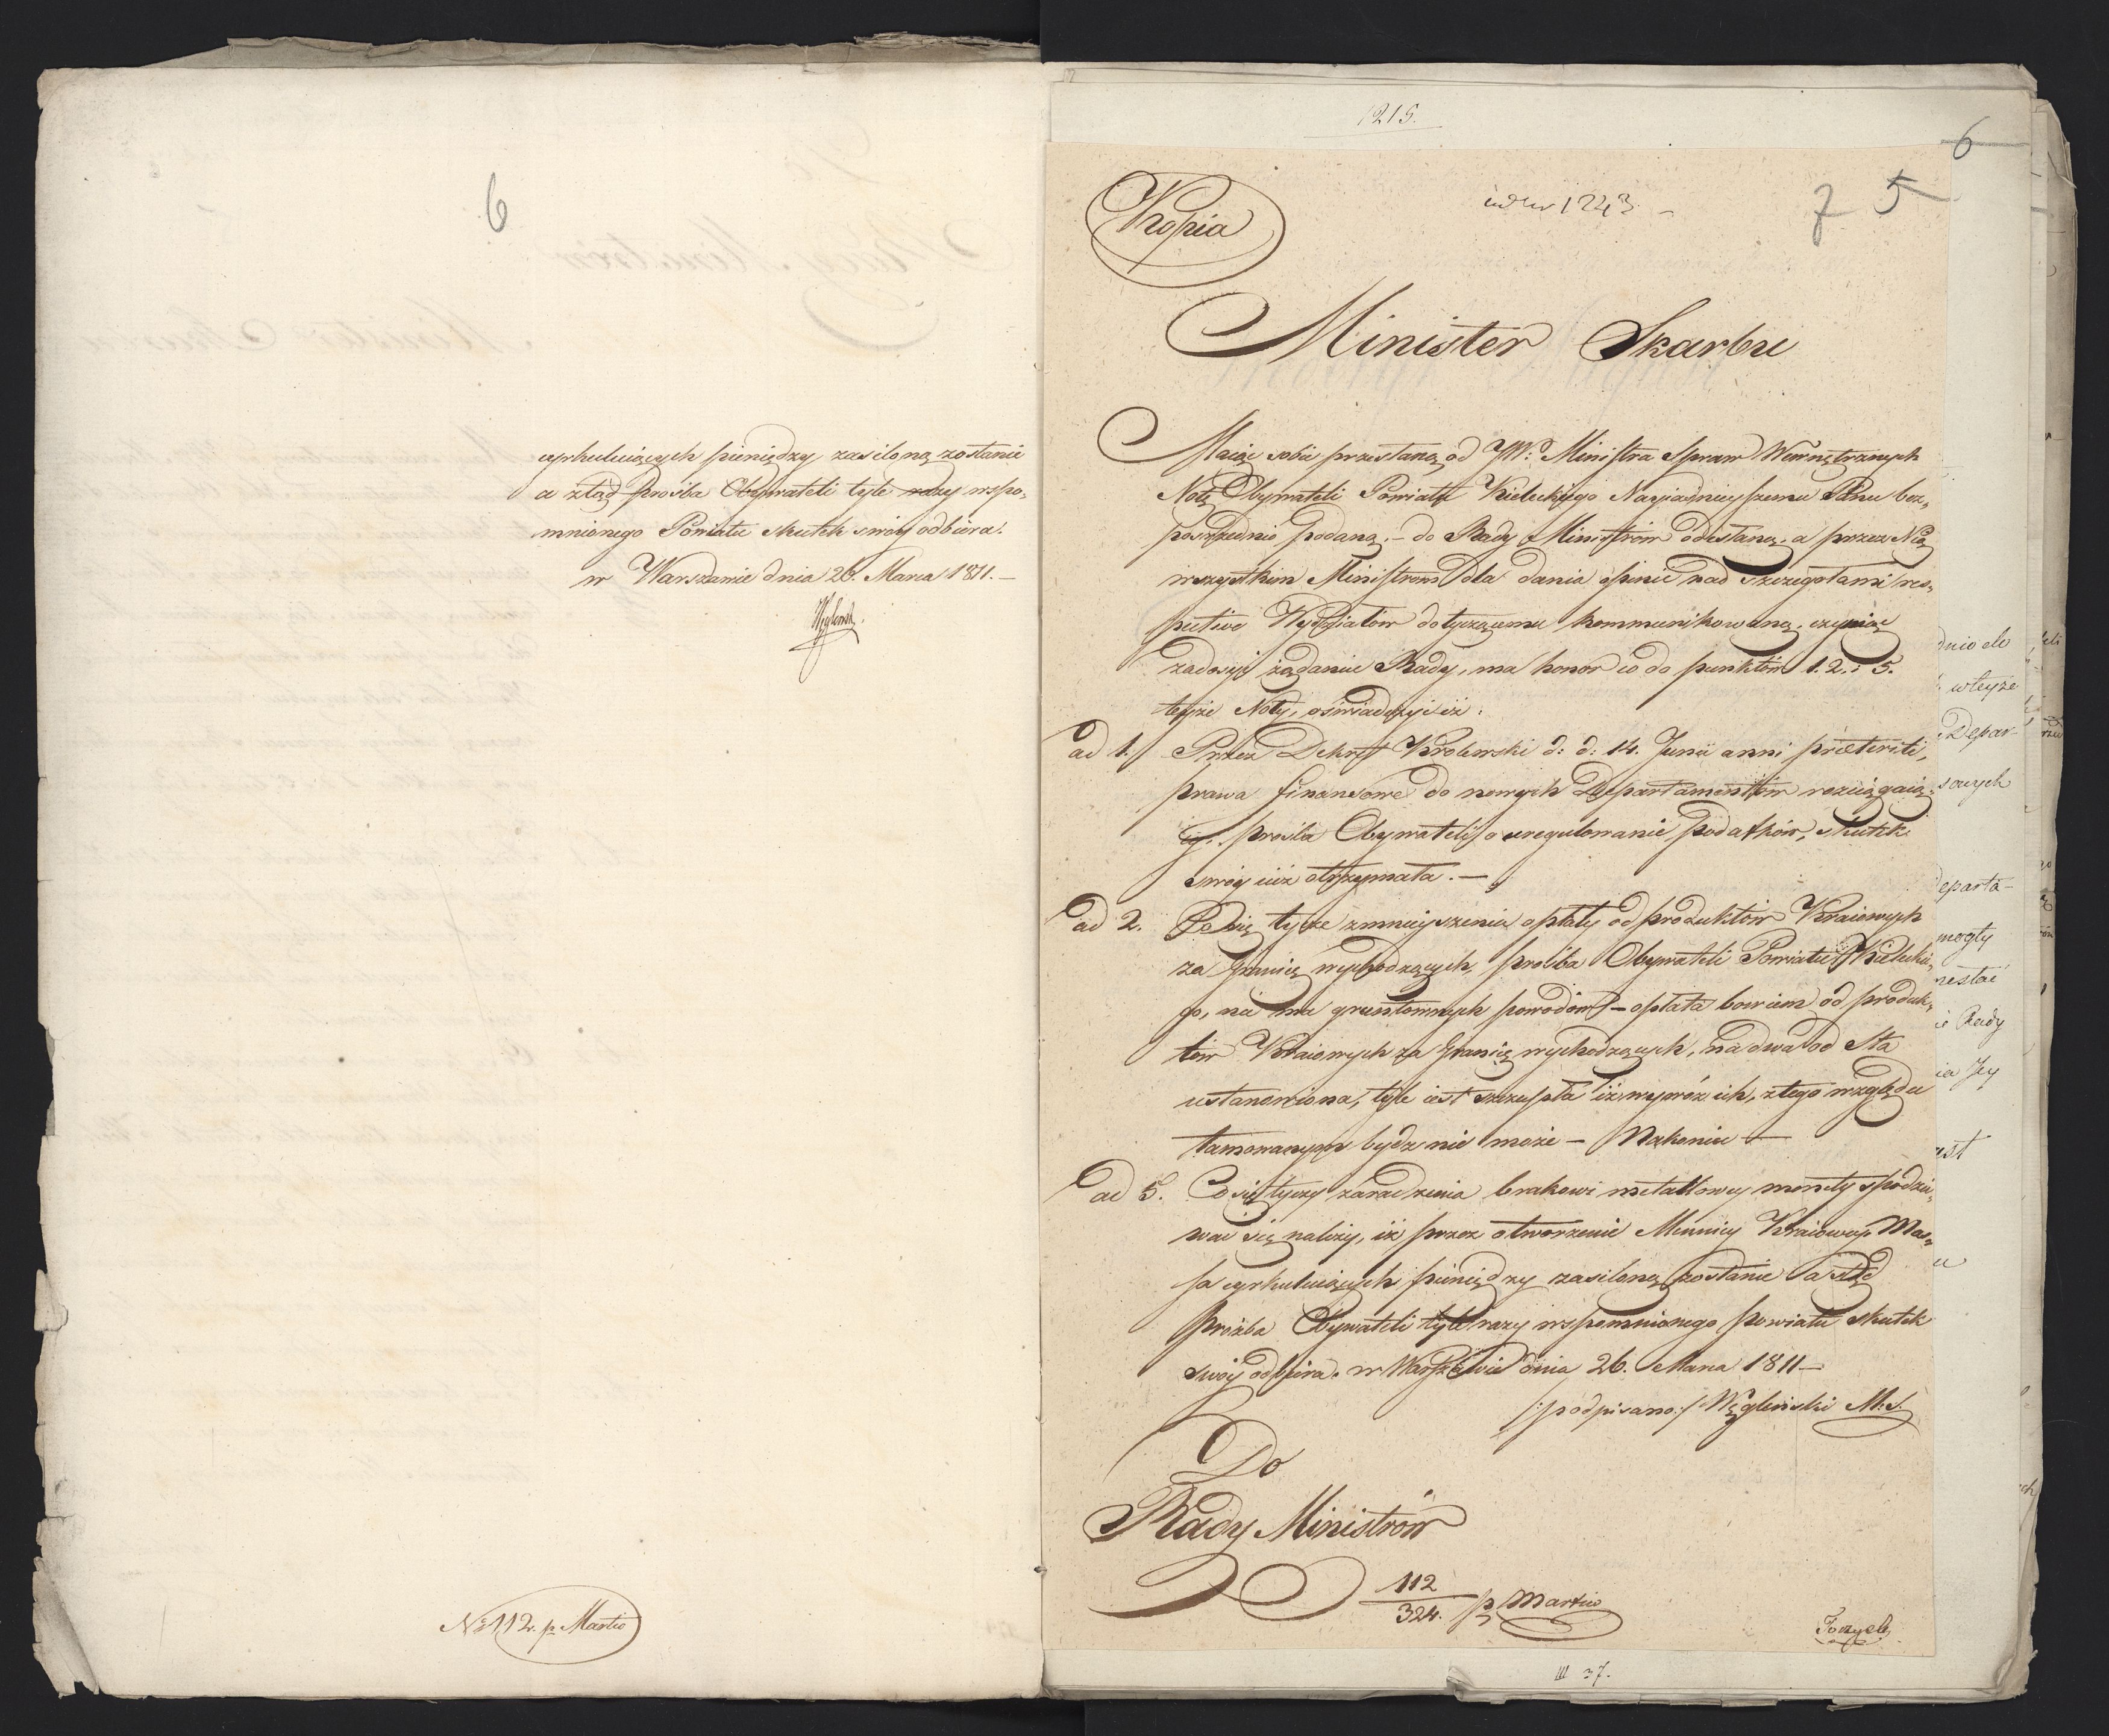 6
cyrkuluiących pieniędzy zasiloną zostanie
a ztąd prośba Obywateli tyle razy wspo„
mnionego Powiatu skutek swóy odbiera.
w Warszawie dnia 26. Marca 1811. —
Węgleński.
No 112. p. Martio
1215.
6
Kopia
1243
7 5
Minister Skarbu
Maiąc sobie przesłaną od JW: Ministra Spraw Wewnętrznych
Notę Obywateli Powiatu Kieleckiego Nayiaśnieyszemu Panu bez„
pośrzednio podaną, – do Rady Ministrów odesłaną, a przez Nią
wszystkim Ministrom dla dania opinii nad szczegółami res„
pective Wydziałów dotyczącemi kommunikowaną, czyniąc
zadosyć żądaniu Rady, ma honor co do punktów 1. 2. i 5.
teyże Noty, oświadczyć iż:
ad 1. Przez Dekret Królewski d: d: 14. Junii anni præteriti,
prawa finansowe do nowych Departamentów rozciągaią„
cy, prośba Obywateli o uregulowanie podatków, skutek
swóy iuż otrzymała. —
ad 2. Co się tycze zmnieyszenia opłaty od produktów Kraiowych
za Granicę wychodzących, prośba Obywateli Powiatu Kieleckie„
go, nie ma gruntownych powodów – opłata bowiem od produk„
tów Kraiowych za Granicę wychodzących, na dwa od Sta
ustanowiona, tyle iest szczupła iż wywóz ich, z tego względu
tamowanym bydz nie może – Nakoniec —
ad 5. Co się tyczy zaradzenia brakowi metallowey monety spodzie„
wać się należy, iż przez otworzenie Mennicy Kraiowey, Mas„
sa cyrkuluiących pieniędzy zasiloną zostanie a ztąd
Prożba Obywateli tyle razy wspomnionego powiatu skutek
swóy odbiera. w Warszawie dnia 26. Marca 1811 —
/:podpisano:/ Węgleński M. S.
Do
Rady Ministrów
112
324. p Martio
III 37.
dnio do
wteyże
Depar-
sowych
eparta-
mogły
nestać
Rady
ia Jey